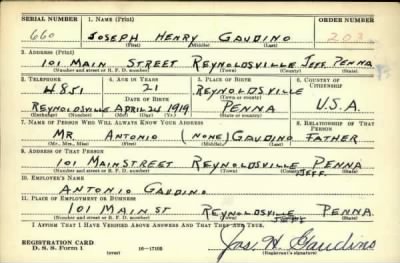 SERIAL NUMBER 1. NAME (Print) ORDER NUMBER
660 JOSEPH HENRY GAUDINO 203
(First) (Middle) (Last)
3. ADDRESS (Print)
101 MAIN STREET REYNOLDSVILLE JEFF. PENNA
(Number and street or R. F. D. number) (Town) (County) (State)
3. TELEPHONE 4. AGE IN YEARS 5. PLACE OF BIRTH 6. COUNTRY OF CITIZENSHIP
4851 21 REYNOLDSVILLE
DATE OF BIRTH (Town or county)
REYNOLDSVILLE APRIL 24 1919 PENNA U.S.A.
(Exchange) (Number) (Mo.) (Day) (Yr.) (State or country)
7. NAME OF PERSON WHO WILL ALWAYS KNOW YOUR ADDRESS 8. RELATIONSHIP OF THAT PERSON
MR. ANTONIO (NONE) GAUDINO FATHER
(Mr., Mrs., Miss) (First) (Middle) (Last)
9. ADDRESS OF THAT PERSON
101 MAIN STREET REYNOLDSVILLE JEFF. PENNA
(Number and street or R. F. D. number) (Town) (County) (State)
10. EMPLOYER'S NAME
ANTONIO GAUDINO
11. PLACE OF EMPLOYMENT OR BUSINESS
101 MAIN ST REYNOLDSVILLE JEFF PENNA.
(Number and street or R. F. D. number) (Town) (County) (State)
I AFFIRM THAT I HAVE VERIFIED ABOVE ANSWERS AND THAT THEY ARE TRUE.
REGISTRATION CARD
D. S. S. Form 1 (over) 16—17105 Jos. H. Gaudino
(Registrant's signature)